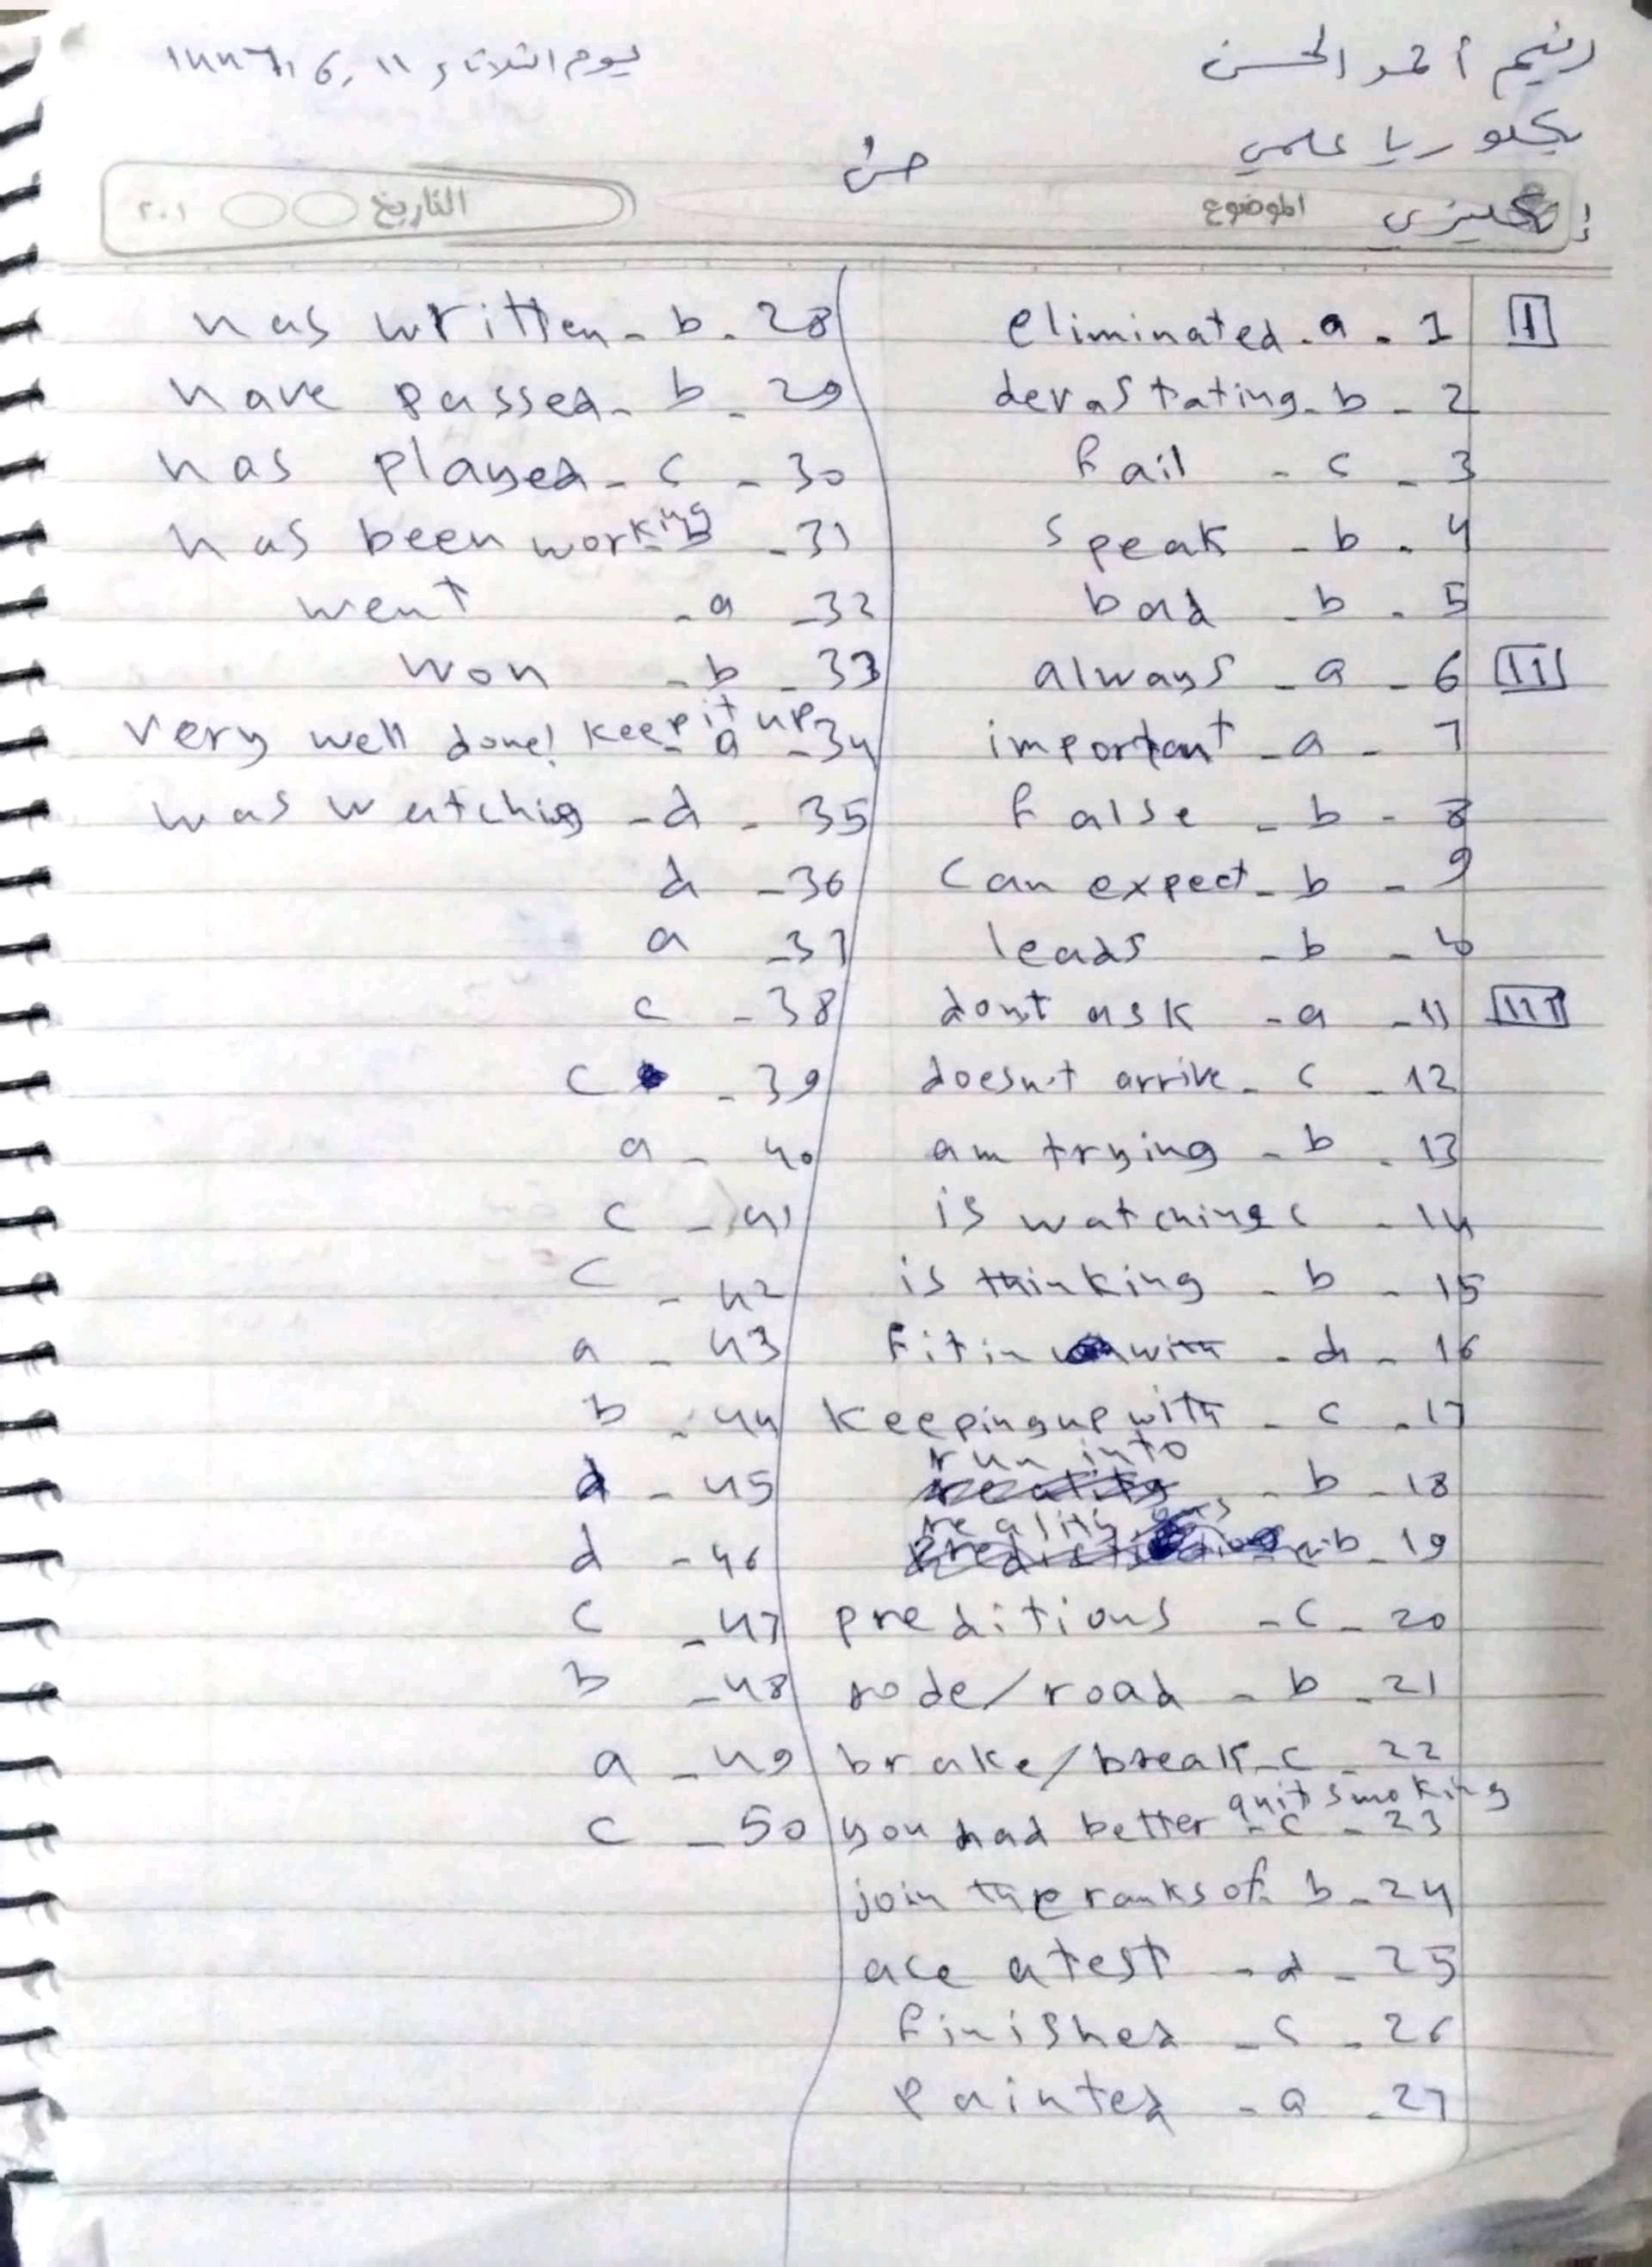 رنيم أحمد الحسن
يوم الثلاثاء 11، 6، 1447
بكلوريا علمي
إنكليزي
الموضوع
التاريخ
٢٠١
I
1 - a - eliminated
2 - b - devastating
3 - c - fail
4 - b - speak
5 - b - bad
II
6 - a - always
7 - a - important
8 - b - false
9 - b - can expect
10 - b - leads
III
11 - a - don't ask
12 - c - doesn't arrive
13 - b - am trying
14 - c is watching
15 - b - is thinking
16 - d - fit in with
17 - c - keeping up with
18 - b - run into
19 - b reality
20 - c - preditions
21 - b - rode/road
22 - c - brake/break
23 - c - you had better quit smoking
24 - b join the ranks of
25 - d - ace a test
26 - c - finished
27 - a - painted
28 - b - has written
29 - b - have passed
30 - c - has played
31 - b has been working
32 - a - went
33 - b - won
34 - a - very well done! keep it up
35 - d - was watchig
36 - d
37 - a
38 - c
39 - c
40 - a
41 - c
42 - c
43 - a
44 - b
45 - d
46 - d
47 - c
48 - b
49 - a
50 - c